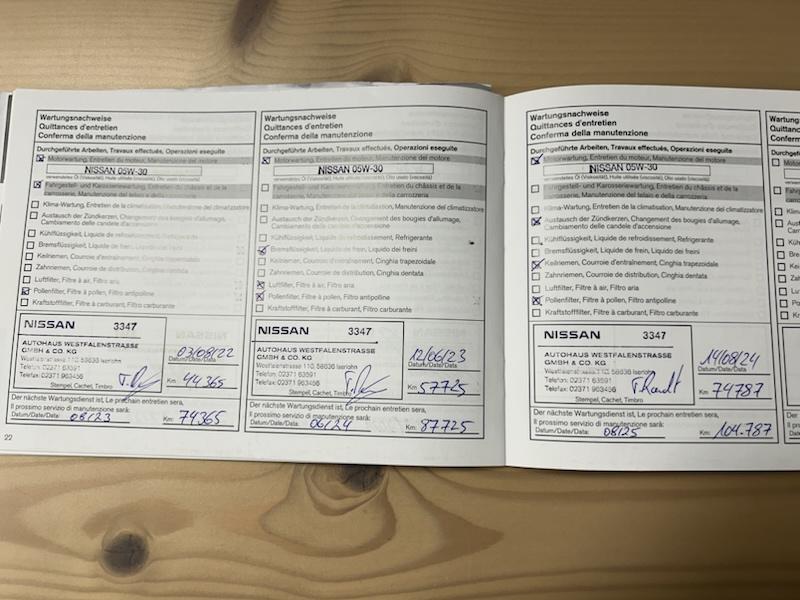 Wartungsnachweise
Quittances d'entretien
Conferma della manutenzione
Durchgeführte Arbeiten, Travaux effectués, Operazioni eseguite
Motorwartung, Entretien du moteur, Manutenzione del motore
NISSAN 05W-30
verwendetes Öl (Viskosität), Huile utilisée (viscosité), Olio usato (viscosità)
Fahrgestell- und Karosseriewartung, Entretien du châssis et de la
carrosserie, Manutenzione del telaio e della carrozzeria
Klima-Wartung, Entretien de la climatisation, Manutenzione del climatizzatore
Austausch der Zündkerzen, Changement des bougies d'allumage,
Cambiamento delle candele d'accensione
Kühlflüssigkeit, Liquide de refroidissement, Refrigerante
Bremsflüssigkeit, Liquide de frein, Liquido dei freini
Keilriemen, Courroie d'entraînement, Cinghia trapezoidale
Zahnriemen, Courroie de distribution, Cinghia dentata
Luftfilter, Filtre à air, Filtro aria
Pollenfilter, Filtre à pollen, Filtro antipolline
Kraftstofffilter, Filtre à carburant, Filtro carburante
NISSAN 3347
AUTOHAUS WESTFALENSTRASSE
GMBH & CO. KG
Westfalenstrasse 110, 58636 Iserlohn
Telefon: 02371 63591
Telefax: 02371 963456
Stempel, Cachet, Timbro
03/08/22
Datum/Date/Data
Km: 44365
Der nächste Wartungsdienst ist, Le prochain entretien sera,
Il prossimo servizio di manutenzione sarà:
Datum/Date/Data: 08/23 Km: 74365
22
Wartungsnachweise
Quittances d'entretien
Conferma della manutenzione
Durchgeführte Arbeiten, Travaux effectués, Operazioni eseguite
Motorwartung, Entretien du moteur, Manutenzione del motore
NISSAN 05W-30
verwendetes Öl (Viskosität), Huile utilisée (viscosité), Olio usato (viscosità)
Fahrgestell- und Karosseriewartung, Entretien du châssis et de la
carrosserie, Manutenzione del telaio e della carrozzeria
Klima-Wartung, Entretien de la climatisation, Manutenzione del climatizzatore
Austausch der Zündkerzen, Changement des bougies d'allumage,
Cambiamento delle candele d'accensione
Kühlflüssigkeit, Liquide de refroidissement, Refrigerante
Bremsflüssigkeit, Liquide de frein, Liquido dei freini
Keilriemen, Courroie d'entraînement, Cinghia trapezoidale
Zahnriemen, Courroie de distribution, Cinghia dentata
Luftfilter, Filtre à air, Filtro aria
Pollenfilter, Filtre à pollen, Filtro antipolline
Kraftstofffilter, Filtre à carburant, Filtro carburante
NISSAN 3347
AUTOHAUS WESTFALENSTRASSE
GMBH & CO. KG
Westfalenstrasse 110, 58636 Iserlohn
Telefon: 02371 63591
Telefax: 02371 963456
Stempel, Cachet, Timbro
12/06/23
Datum/Date/Data
Km: 57725
Der nächste Wartungsdienst ist, Le prochain entretien sera,
Il prossimo servizio di manutenzione sarà:
Datum/Date/Data: 06/24 Km: 87725
Wartungsnachweise
Quittances d'entretien
Conferma della manutenzione
Durchgeführte Arbeiten, Travaux effectués, Operazioni eseguite
Motorwartung, Entretien du moteur, Manutenzione del motore
NISSAN 05W-30
verwendetes Öl (Viskosität), Huile utilisée (viscosité), Olio usato (viscosità)
Fahrgestell- und Karosseriewartung, Entretien du châssis et de la
carrosserie, Manutenzione del telaio e della carrozzeria
Klima-Wartung, Entretien de la climatisation, Manutenzione del climatizzatore
Austausch der Zündkerzen, Changement des bougies d'allumage,
Cambiamento delle candele d'accensione
Kühlflüssigkeit, Liquide de refroidissement, Refrigerante
Bremsflüssigkeit, Liquide de frein, Liquido dei freini
Keilriemen, Courroie d'entraînement, Cinghia trapezoidale
Zahnriemen, Courroie de distribution, Cinghia dentata
Luftfilter, Filtre à air, Filtro aria
Pollenfilter, Filtre à pollen, Filtro antipolline
Kraftstofffilter, Filtre à carburant, Filtro carburante
NISSAN 3347
AUTOHAUS WESTFALENSTRASSE
GMBH & CO. KG
Westfalenstrasse 110, 58636 Iserlohn
Telefon: 02371 63591
Telefax: 02371 963456
Stempel, Cachet, Timbro
14/08/24
Datum/Date/Data
Km: 74787
Der nächste Wartungsdienst ist, Le prochain entretien sera,
Il prossimo servizio di manutenzione sarà:
Datum/Date/Data: 08/25 Km: 104.787